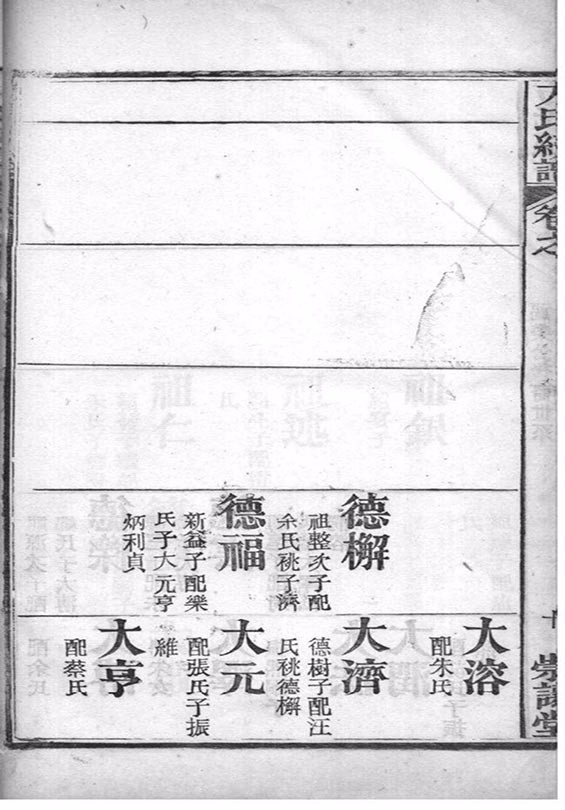 氏統譜
卷之
崇讓堂
德檞
祖整次子配
余氏祧子濟
德福
新益子配樂
氏子大元亨
炳利貞
大溶
配朱氏
大濟
德樹子配汪
氏祧德檞
大元
配張氏子振
維
大亨
配蔡氏